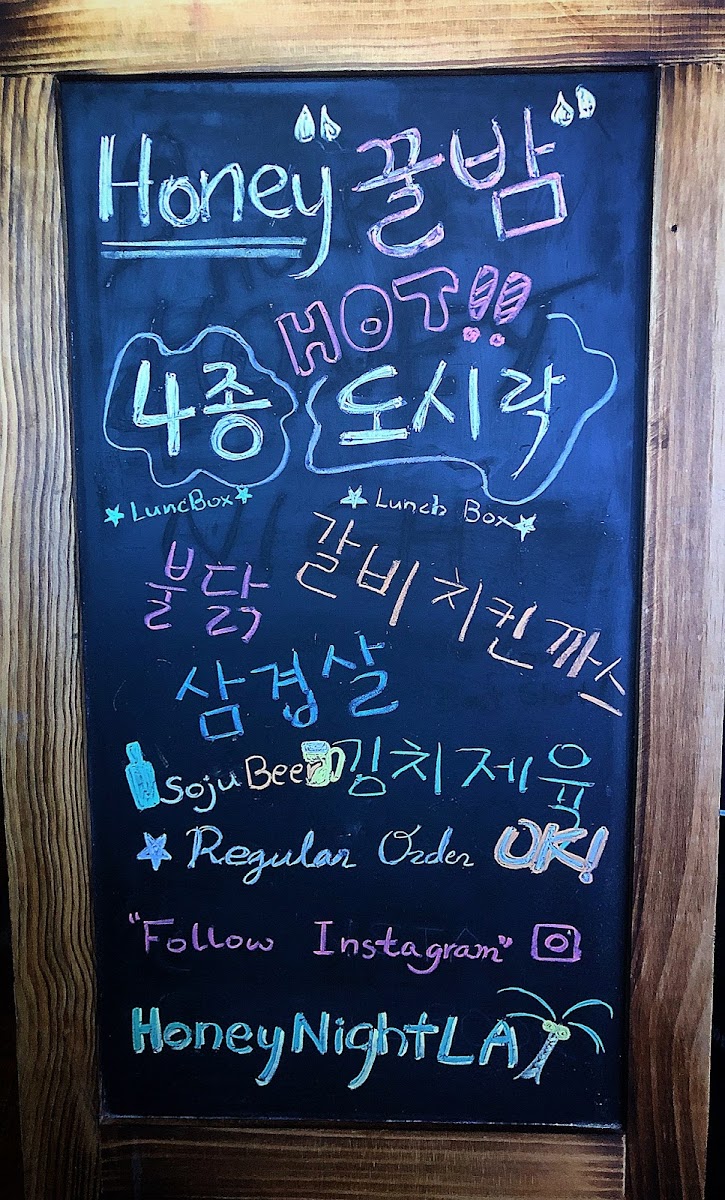 Honey 꿀밤
HOT!!
4종 도시락
LuncBox Lunch Box
불닭 갈비치킨까스
삼겹살
Soju Beer 김치제육
Regular Order OK!
"Follow Instagram"
HoneyNightLA